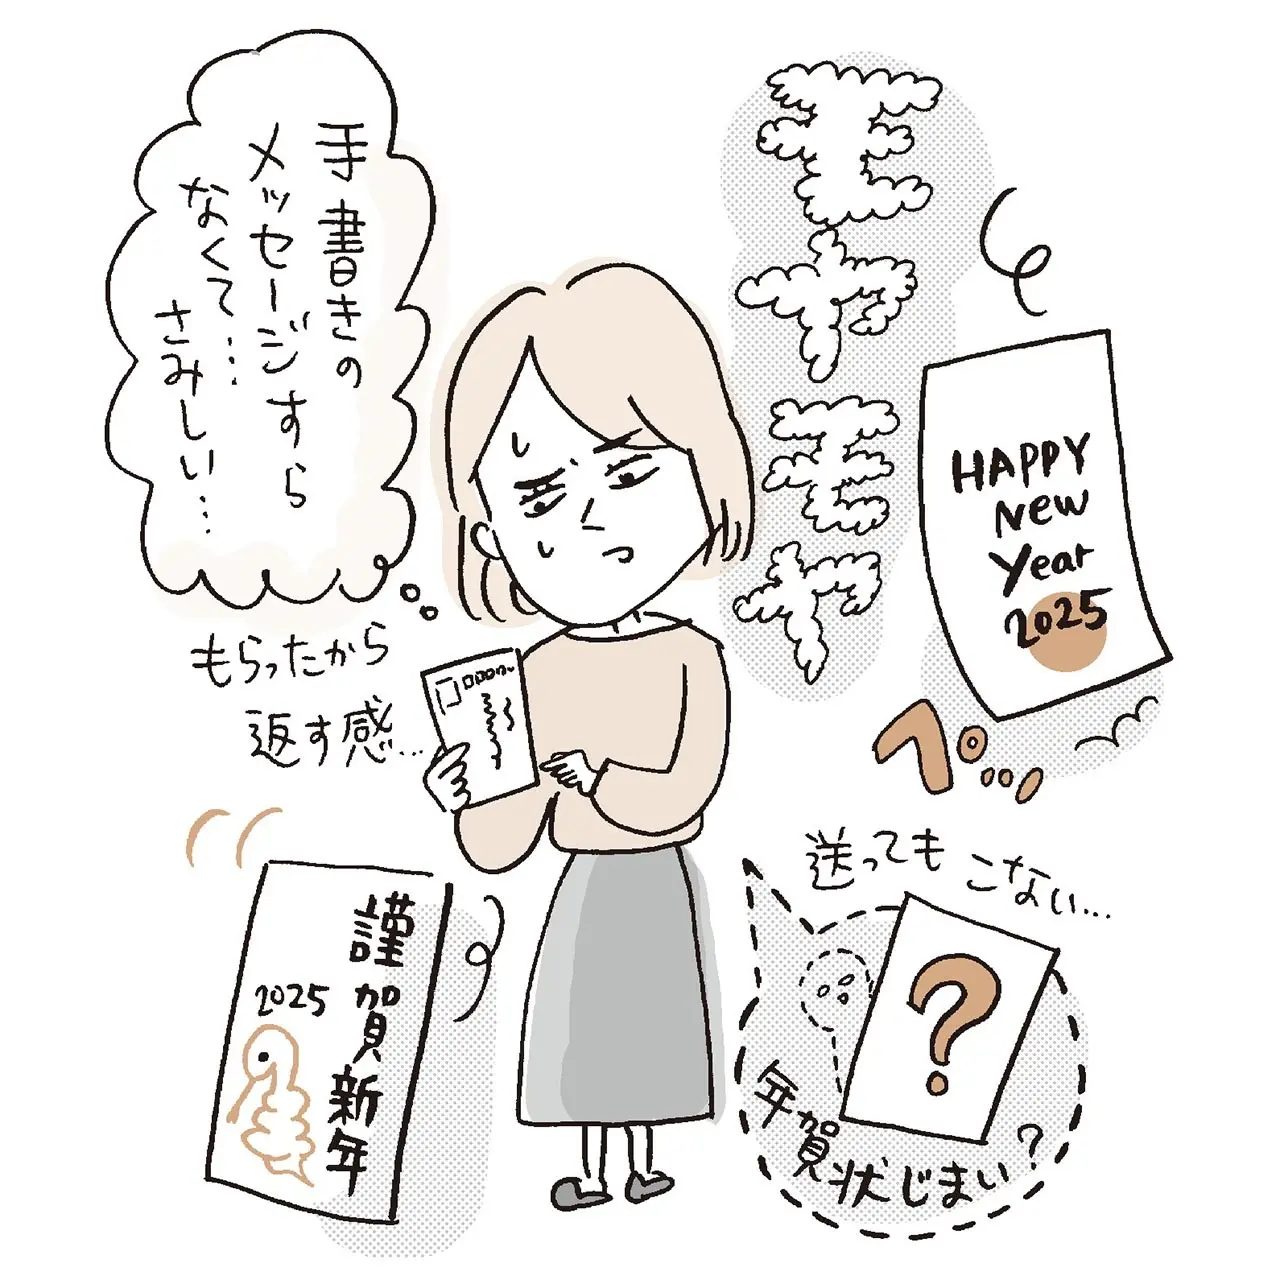 手書きの
メッセージすら
なくて…
さみしい…
もらったから
返す感…
モヤモヤ
HAPPY
New
Year
2025
ペッ
謹賀新年
2025
送っても
こない…
?
年賀状じまい?